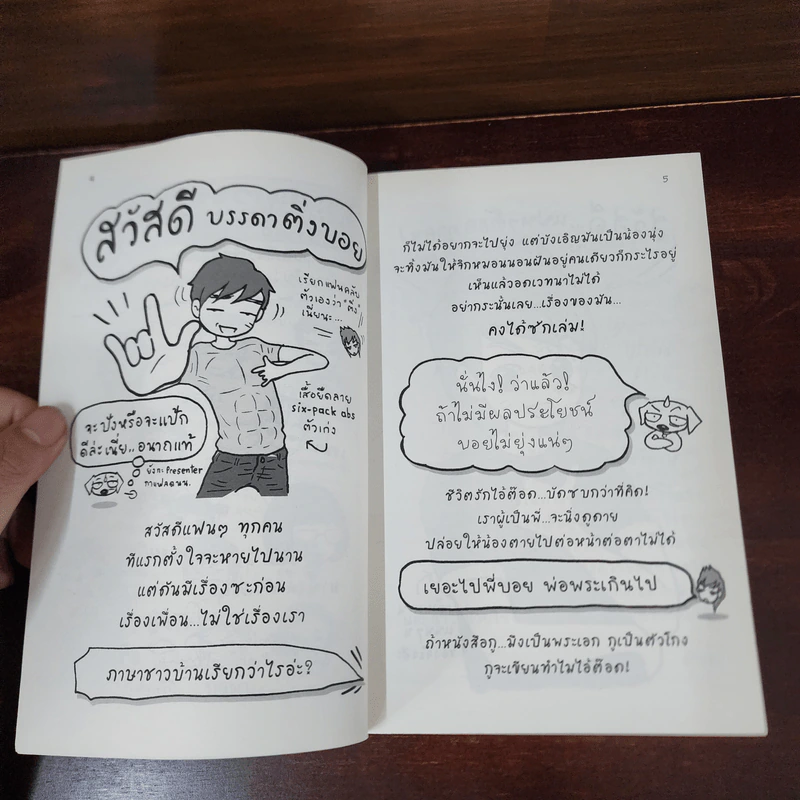 4
สวัสดี บรรดาติ่งบอย
เรียกแฟนคลับ
ตัวเองว่า "ติ่ง"
เนี่ยนะ...
เสื้อยืดลาย
six-pack abs
ตัวเก่ง
จะปังหรือจะแป้ก
ดีล่ะเนี่ย..อนาถแท้
ยังกะ Presenter
กาแฟลดนน.
สวัสดีแฟนๆ ทุกคน
ทีแรกตั้งใจจะหายไปนาน
แต่ดันมีเรื่องซะก่อน
เรื่องเพื่อน...ไม่ใช่เรื่องเรา
ภาษาชาวบ้านเรียกว่าไรอ่ะ?
5
ก็ไม่ได้อยากจะไปยุ่ง แต่บังเอิญมันเป็นน้องนุ่ง
จะทิ้งมันให้จิกหมอนนอนฝันอยู่คนเดียวก็กระไรอยู่
เห็นแล้วอดเวทนาไม่ได้
อย่ากระนั้นเลย...เรื่องของมัน...
คงได้ซักเล่ม!
นั่นไง! ว่าแล้ว!
ถ้าไม่มีผลประโยชน์
บอยไม่ยุ่งแน่ๆ
ชีวิตรักไอ้ต๊อด...บัดซบกว่าที่คิด!
เราผู้เป็นพี่...จะนิ่งดูดาย
ปล่อยให้น้องตายไปต่อหน้าต่อตาไม่ได้
เยอะไปพี่บอย พ่อพระเกินไป
ถ้าหนังสือกู...มึงเป็นพระเอก กูเป็นตัวโกง
กูจะเขียนทำไมไอ้ต๊อด!